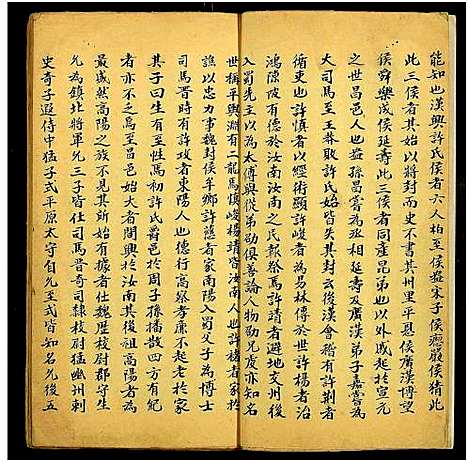 能知也漢興許氏侯者六人柏至侯盎宋子侯瘛嚴侯猜此
此三侯者其始以將封而史不書其州里平恩侯廣漢博望
侯舜樂成侯延壽此三侯者同產昆弟也以外戚起於宣元
之世昌邑人也盎孫昌嘗為丞相延壽及廣漢弟子嘉嘗為
大司馬至王莽敗許氏始皆失其封云後漢會稽有許荆者
循吏也許慎者以經術顯許峻者為易林傳於世許楊者治
鴻隙陂有德於汝南汝南之民報祭焉許靖者避地交州後
入蜀先主以為太傅與從弟劭俱善論人物劭兄虔亦知名
世稱平輿淵有二龍焉慎峻楊靖皆汝南人也許褚者家於
譙以忠力事魏封侯牟鄉許慈者家南陽入蜀父子為博士
司馬晋時有許孜者東陽人也德行高察孝廉不起老於家
其子曰生有至性焉初許氏爵邑於周子孫播散四方有紀
者亦不乏焉至昌邑始大者間興於汝南其後祖高陽者為
最盛然高陽之族不見其所始有據者仕魏歷校尉郡守生
允為鎮北將軍允三子皆仕司馬晋奇司隷校尉猛幽州刺
史奇子遐侍中猛子式平原太守自允至式皆知名允後五